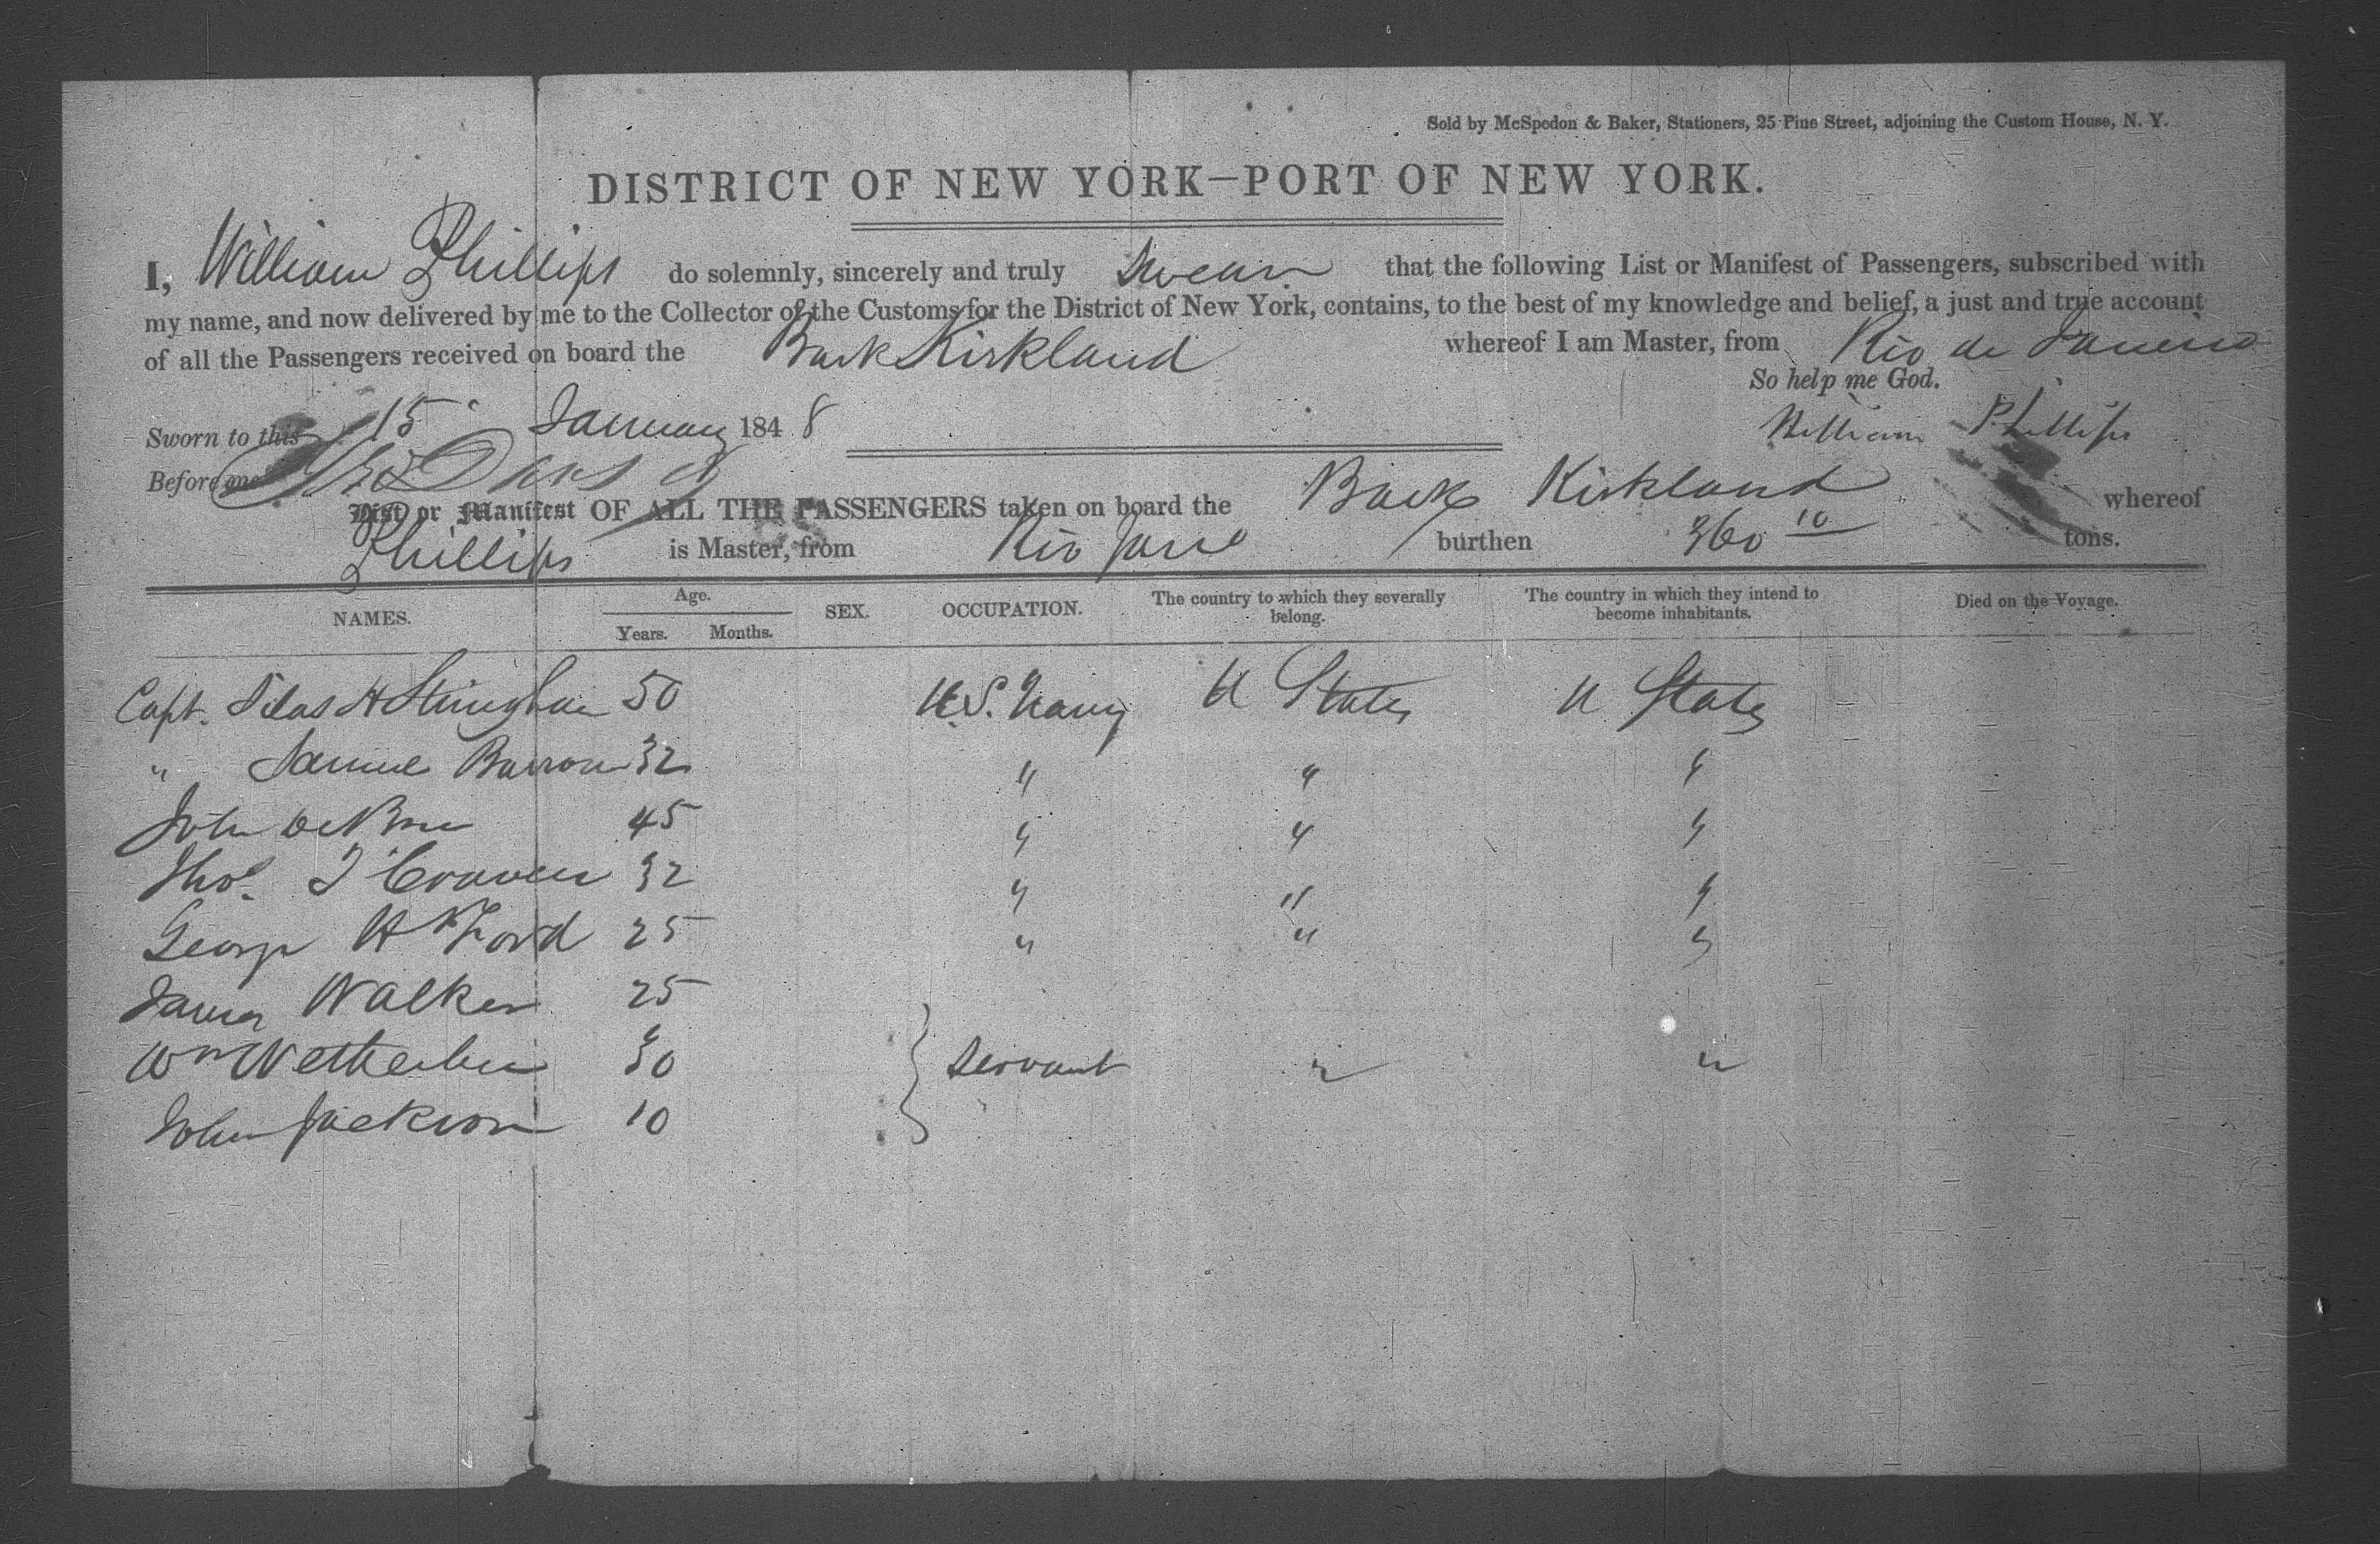 Sold by McSpedon & Baker, Stationers, 25 Pine Street, adjoining the Custom House, N. Y.
DISTRICT OF NEW YORK—PORT OF NEW YORK.
I, William Phillips do solemnly, sincerely and truly swear that the following List or Manifest of Passengers, subscribed with
my name, and now delivered by me to the Collector of the Customs for the District of New York, contains, to the best of my knowledge and belief, a just and true account
of all the Passengers received on board the Bark Kirkland whereof I am Master, from Rio de Janeiro
So help me God.
Sworn to this 15 January 1848
William Phillips
Before me
List or Manifest OF ALL THE PASSENGERS taken on board the Bark Kirkland whereof
Phillips is Master, from Rio Jane burthen 360 10 tons.
NAMES. Age. Years. Months. SEX. OCCUPATION. The country to which they severally belong. The country in which they intend to become inhabitants. Died on the Voyage.
Capt. Silas H Stringham 50 U.S. Navy U States U States
" Samuel Barron 32 " " "
John De Bree 45 " " "
Thos. T Craven 32 " " "
George H 25 " " "
James Walker 25
Wm Wetherbee 30 } Servant " "
John Jackson 10